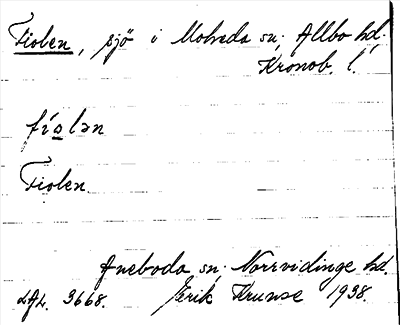 Fiolen, sjö i Moheda sn; Allbo hd.
Kronob. l.
fíɷlən
Fiolen.
Aneboda sn; Norrvidinge hd.
LAL. 3668. Erik Kruuse 1938.